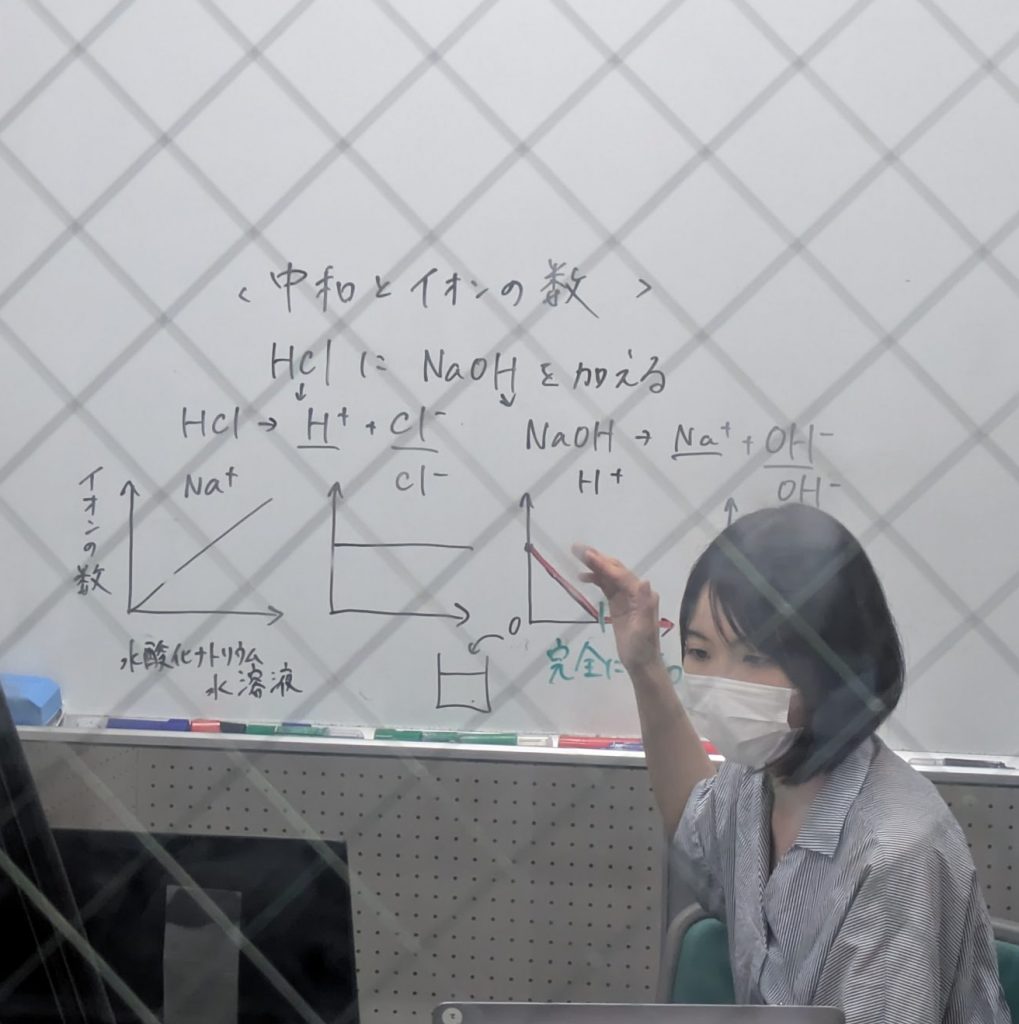 < 中和とイオンの数 >
HClにNaOHを加える
HCl → H⁺ + Cl⁻
NaOH → Na⁺ + OH⁻
イオンの数
Na⁺
Cl⁻
H⁺
OH⁻
0
水酸化ナトリウム
水溶液
完全に